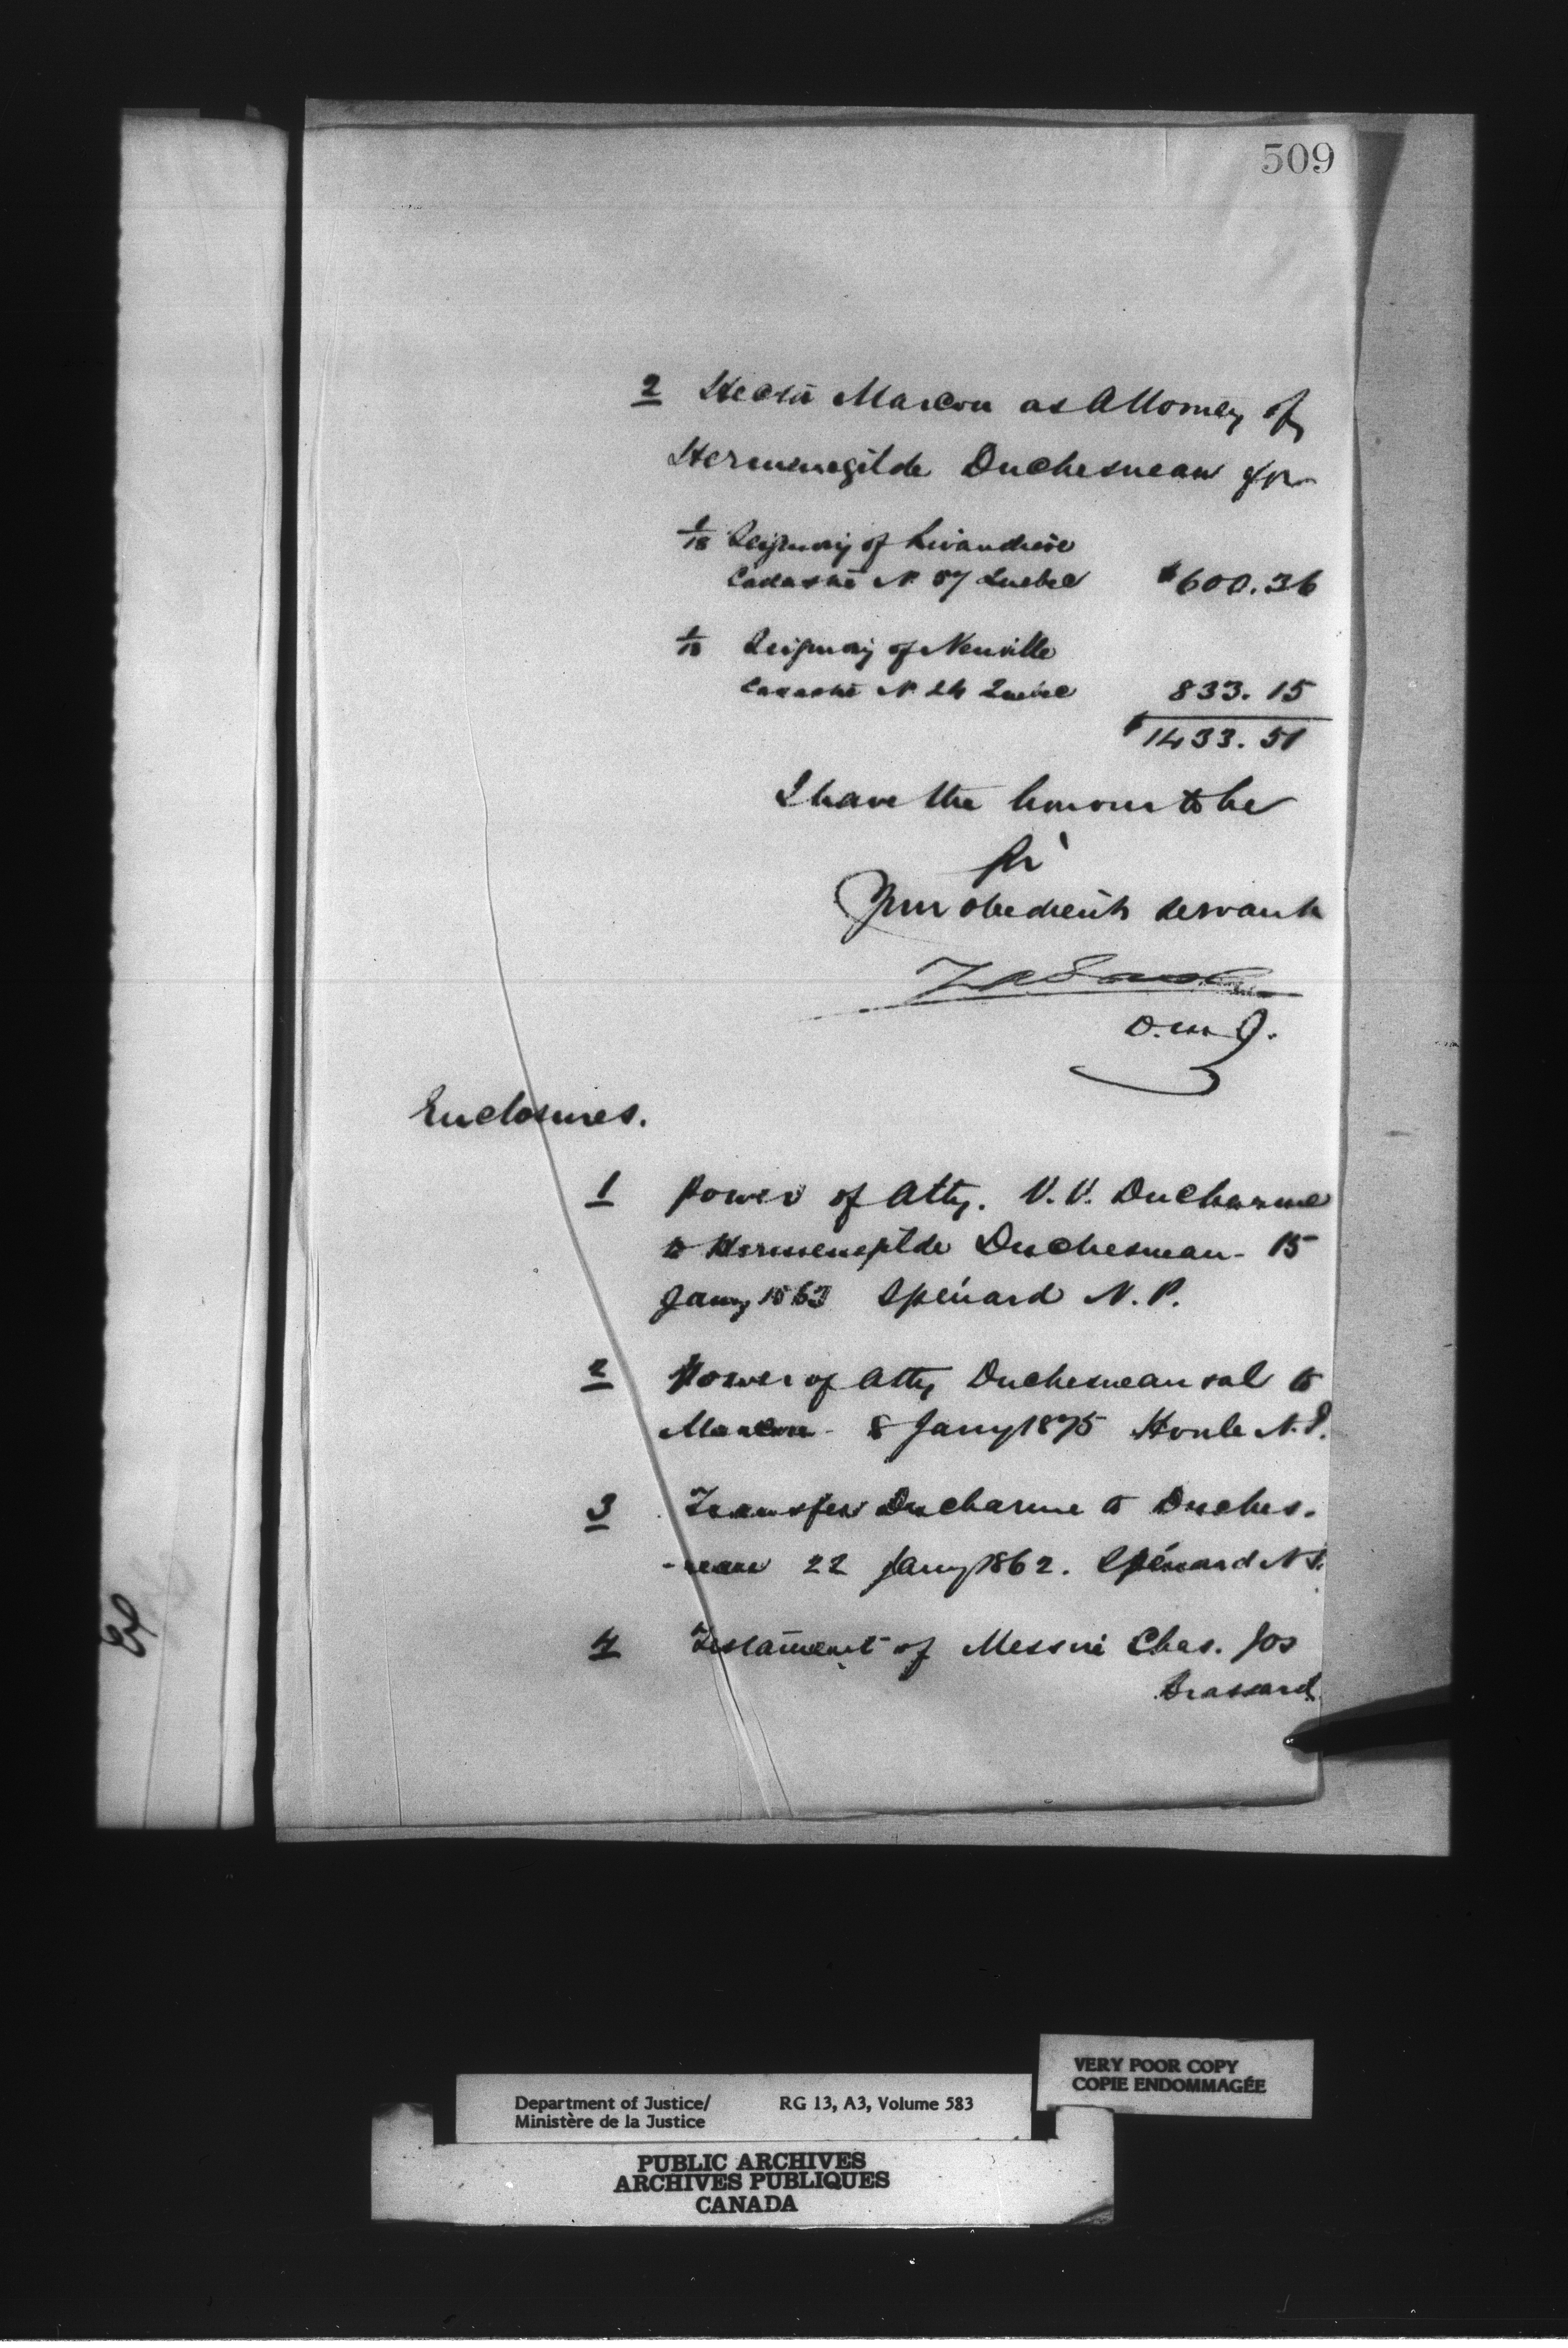 509
2 Hector Marcou as Attorney of
Hermenegilde Duchesneau for
1/18 Seigniory of Livaudière
Cadastre No 57 Quebec $600.36
1/18 Seigniory of Neuville
Cadastre No 24 Quebec 833.15
$1433.51
I have the honour to be
Sir
Your obedient servant
D.M.J.
Enclosures.
1 Power of Atty. V.V. Ducharme
to Hermenegilde Duchesneau - 15
Jany 1863 Spénard N.P.
2 Power of Atty Duchesneau to
Marcou - 8 Jany 1875 Houle N.P.
3 Transfer Ducharme to Duches-
-neau 22 Jany 1862. Spénard N.P.
4 Testament of Messire Chas. Jos
Brassard
Department of Justice/ RG 13, A3, Volume 583
Ministère de la Justice
VERY POOR COPY
COPIE ENDOMMAGÉE
PUBLIC ARCHIVES
ARCHIVES PUBLIQUES
CANADA